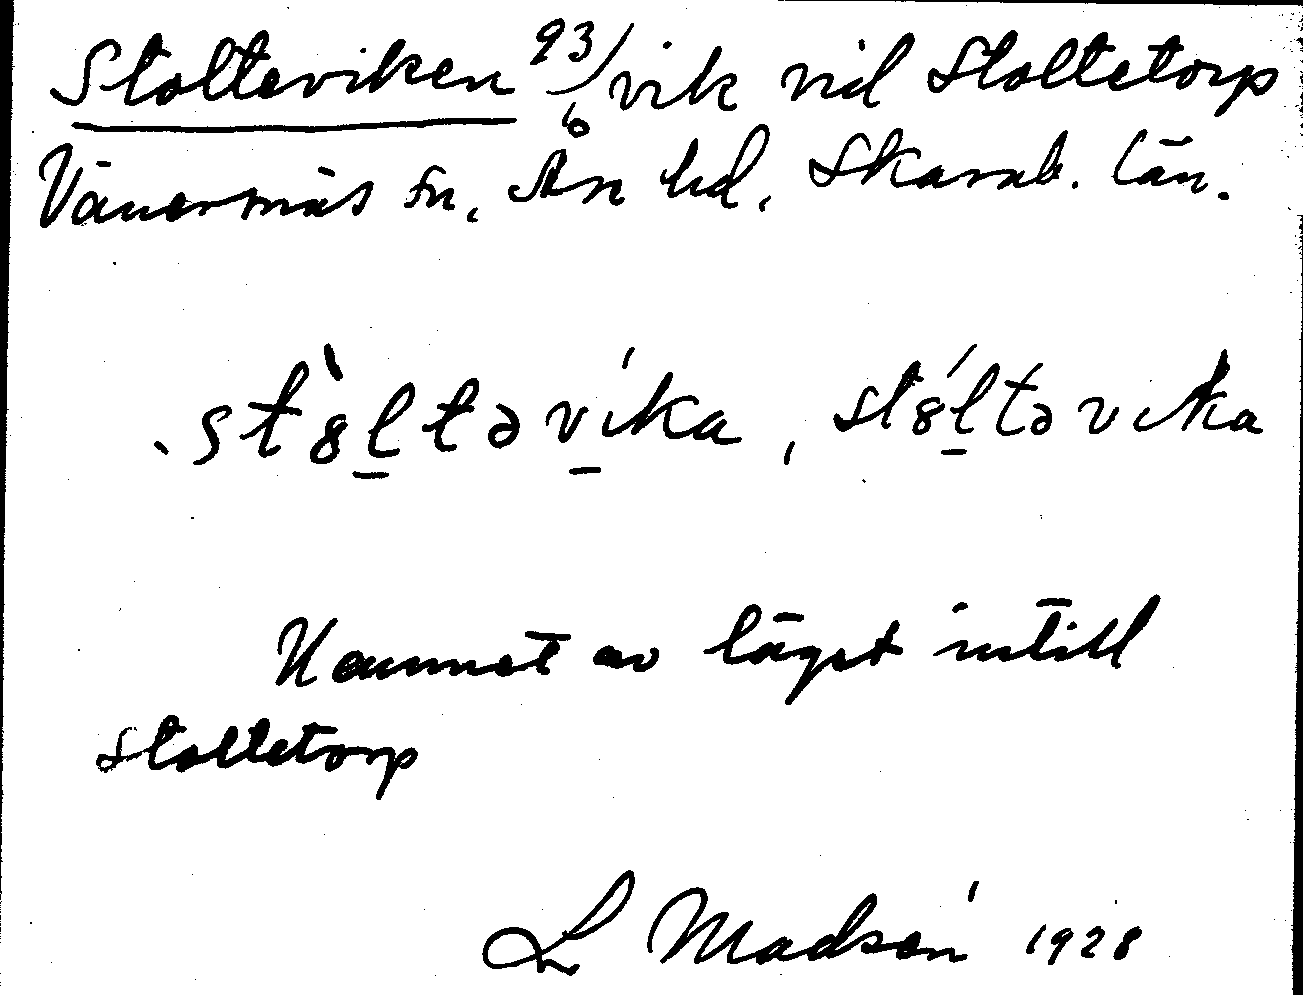 Stolteviken 93/6 vik vid Stoltetorp
Vänersnäs sn, Ås hd, Skarab. län.
st`8ltəvíka, st8́ltəvika
Namnet av läget intill
Stoltetorp
L Madsén 1928